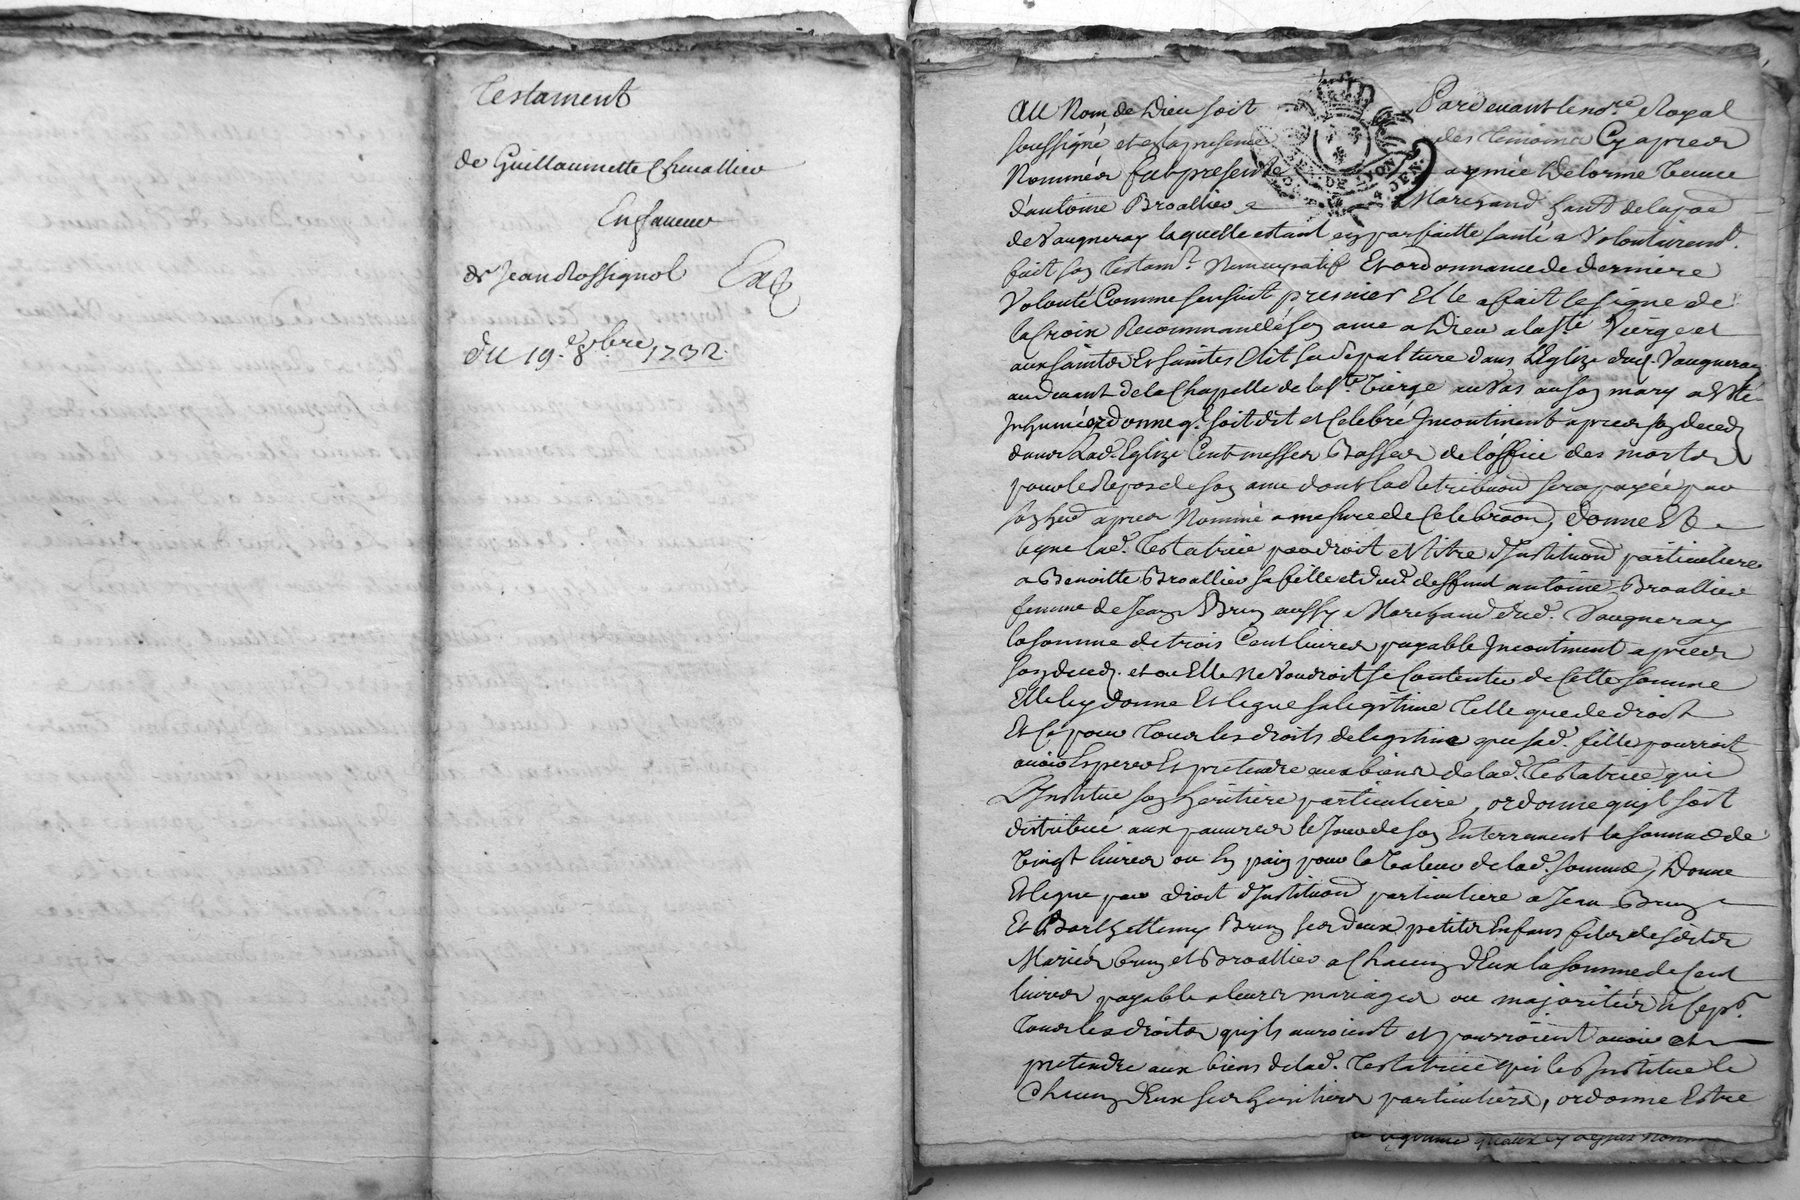 Testament
de Guillaumette Chevallier
En faveur
de Jean Rossignol
du 19.e 8.bre 1732.
Au Nom de Dieu soit Pardevant le no.re Royal
soussigné et en la presence des temoins Cy apres
Nommés fut presente aymée Delorme veuve
d'antoine Broallier Marchand
de Vaugneray laquelle estant en parfaitte santé a Volontairem.t
fait son Testam.t Nuncupatif Et ordonnance de derniere
Volonté Comme sensuit premier Elle a fait le signe de
la Croix Recommandé son ame a Dieu a la S.te Vierge et
aux saints Et saintes Elit sa sepulture dans L'Eglize dud. Vaugneray
au devant de la Chapelle de la S.te Vierge au Vas ou son mary a Esté
Inhumé ordonne q.l soit dit et Celebré Incontinent apres son deced
dans Lad. Eglize Cent messes Basses de l'office des morts
pour le Repos de son ame dont la Retribuon sera payée par
son her. apres Nommé a mesure de Celebraon, Donne Et
legue lad. Testatrice par droit et titre d'Instituon particuliere
a Benoitte Broallier sa fille et dud. deffunt antoine Broallier
femme de Jean Brun aussy Marchand dud. Vaugneray
la somme de trois Cent livres payable Incontinent apres
son deced. et ou Elle Ne Voudroit se Contenter de Cette somme
Elle luy donne Et legue sa legitime Telle que de droit
Et Ce pour Tous les droits de legitime que sad. fille pourroit
avoir Esperer Et pretendre aux biens de lad. Testatrice qui
L'Institue son heritiere particuliere, ordonne quil soit
distribué aux pauvres le Jour de son Enterrement la somme de
Vingt livres ou En pain pour la Valeur de lad. somme, Donne
Et legue par droit d'Instituon particuliere a Jean Brun
Et Barthellemy Brun ses deux petits Enfans fils desdits
Mariés brun et Broallier a Chacun d'Eux la somme de Cent
livres payable a leurs mariages ou majorités Et Ce p.r
Tous les droits quils auroient et pourroient avoir et
pretendre aux biens de lad. Testatrice qui les Institue
Chacun d'Eux ses heritiers particuliers, ordonne Estre